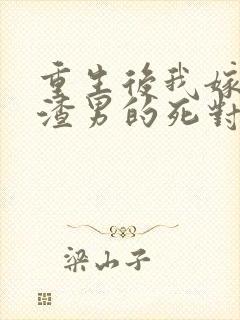 重生後我嫁
渣男的死對
梁山子